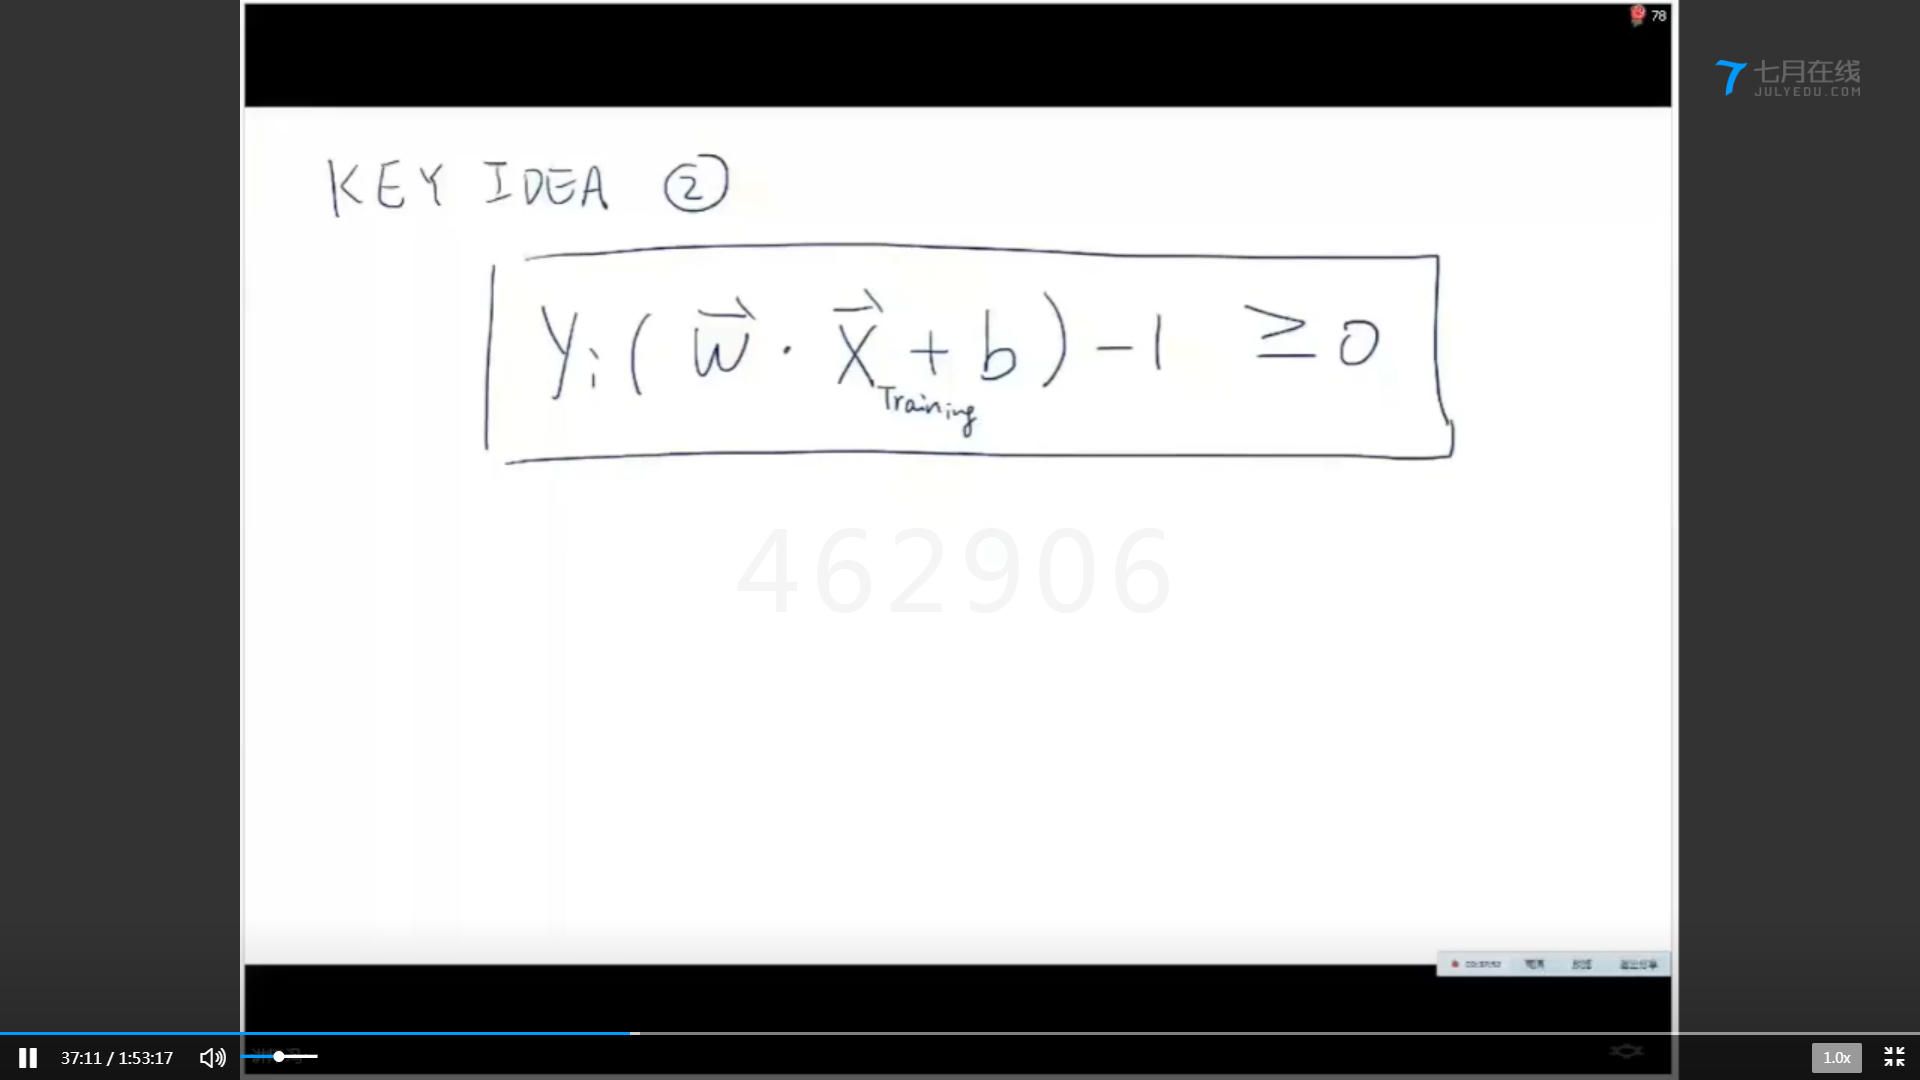 78
七月在线
JULYEDU.COM
KEY IDEA ②
yᵢ( w⃗ · x⃗_Training + b ) - 1 ≥ 0
462906
37:11 / 1:53:17
1.0x